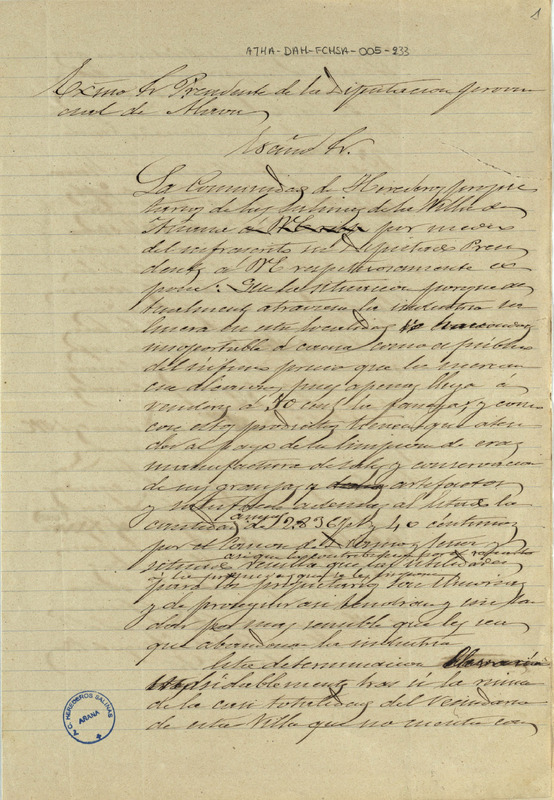 1
ATHA-DAH-FCHSA-005-233
Excmo Sr Presidente de la Diputacion provin
cial de Alava
Excmo Sr.
La Comunidad de Herederos propie
tarios de las Salinas de la Villa de
Añana a por medio
del infrascrito su Diputado Presi
dente á VE respetuosamente es
pone: Que la situacion porque ac
tualmente atraviesa la industria sa
linera en esta localidad
insoportable á causa como es público
del infimo precio que la mercan
cia alcanza, pues apenas llega á
venderse á 70 cent. la fanega, y como
con estos productos tienen que aten
der al pago de la limpieza de eras
manufactura de sales y conservacion
de sus granjas y artefactos
y satisfacer ademas al Estado la
cantidad de 12.836 pts y 40 centimos
por el Canon de
que las utilidades
para los propietarios son
y de proseguir en
dor por mas sensible que les sea
que abandonar la industria.
Esta determinacion
indudablemente tras sí la ruina
de la casi totalidad del vecindario
de esta Villa que no cuenta con
C. HEREDEROS SALINAS
AÑANA